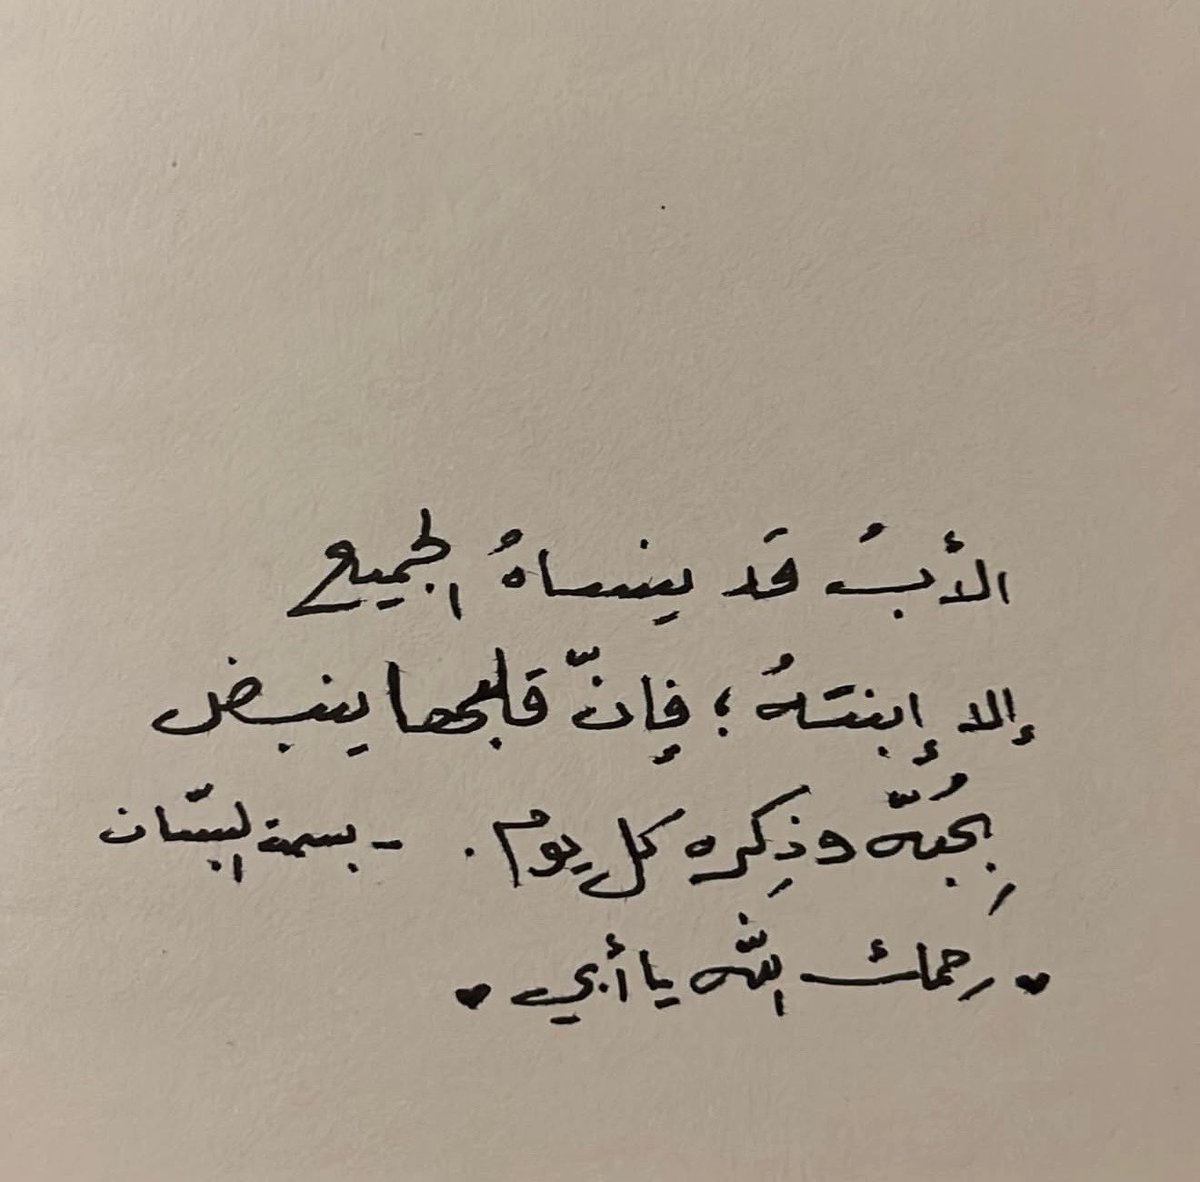 الأبُ قَد ينساهُ الجميع
إلا إبنتهُ ؛ فإنّ قلبها ينبض
بِحُبّه وذِكره كل يوم . - بسمة البسّان
♥ رحمك اللّه يا أبي ♥